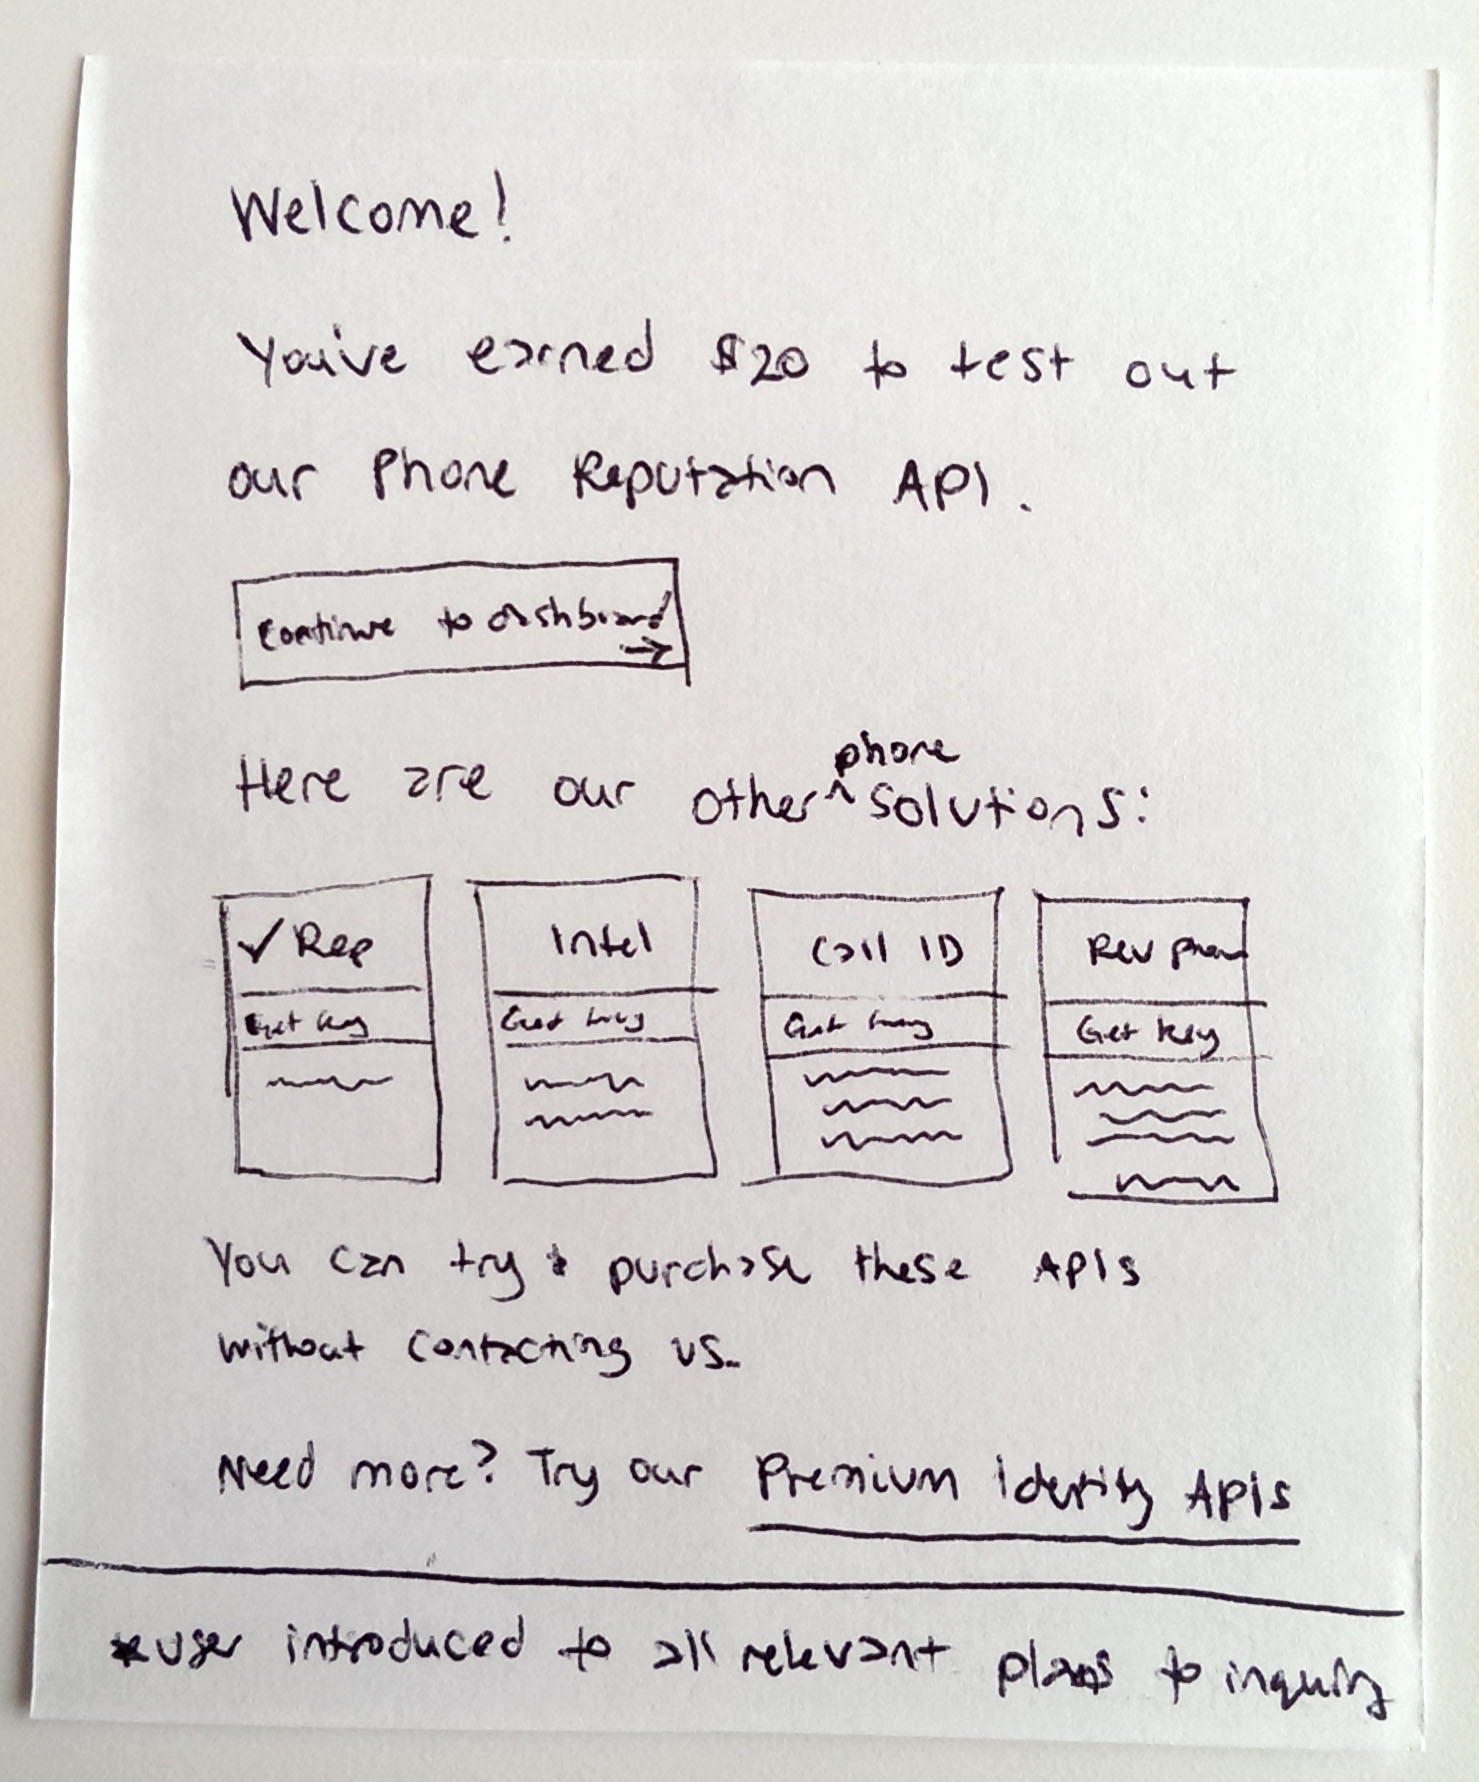 Welcome!
You've earned $20 to test out
our Phone Reputation API.
Continue to dashboard
→
Here are our other ^ phone solutions:
✓ Rep
Get key
Intel
Get key
Call ID
Get key
Rev phone
Get key
You can try & purchase these APIs
without contacting us.
Need more? Try our Premium Identity APIs
*user introduced to all relevant plans to inquiry